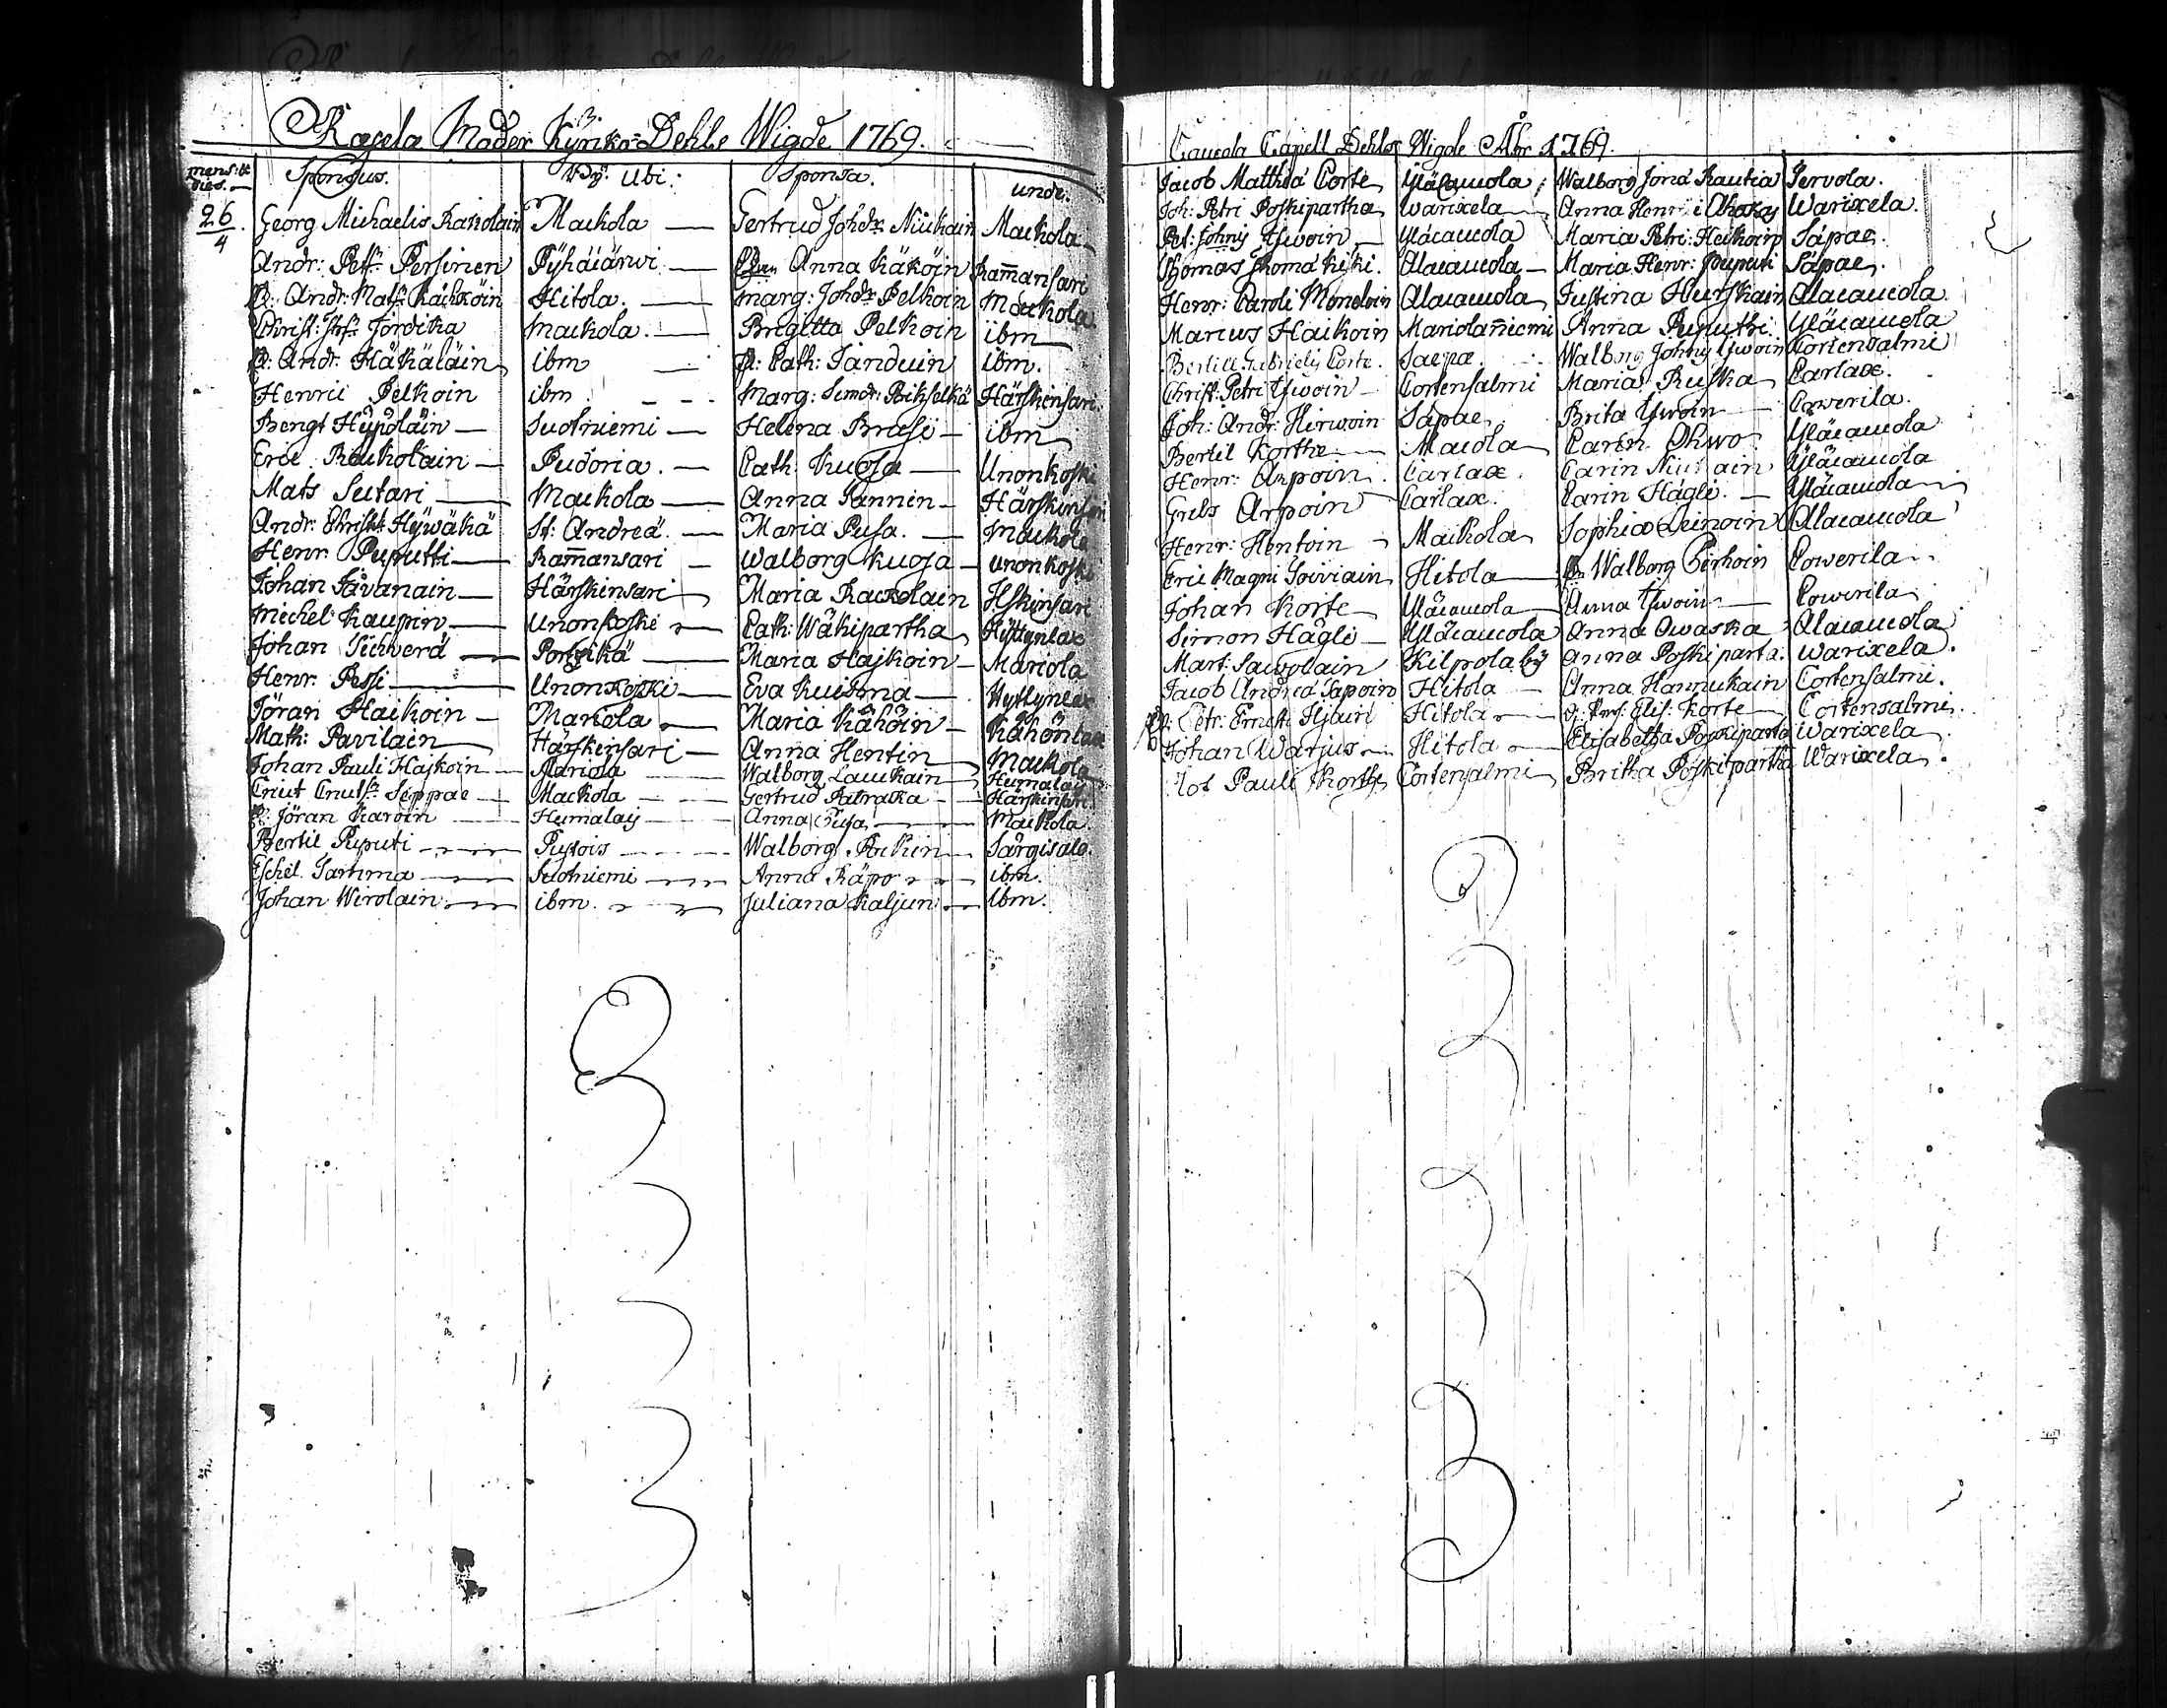 Rægela Moder Kyrko-Dehls Wigde 1769.
mens: & dies. Sponsus. Ubi: Sponsa. unde.
26/4 Georg Michaelis Ranolain Maukola Gertrud Johdr Niukain Maukola
Andr: Petr: Persinen Pyhäiärwi Anna Käköin Kam̄ansari
Andr: Mats: Käkköin Hitola. Marg: Johdr Pelkoin Maukola
Christ: Jördikä Maukola. Brigitta Pelkoin ibm
Andr: Häkäläin ibm Cath: Janduin ibm.
Henric Pelkoin ibm Marg: Simdr: Pikselkä Härskensari.
Bengt Hypöläin Suotniemi Helena Brusi ibm
Eric Raukolain Pudoria. Cath. Kuosa Unonkoski
Mats Sutari Maukola Anna Pannin Härskinsari
Andr. Christ: Hywäkä St: Andreä. Maria Pusa. Maukola
Henr. Puputti Kam̄ansari Walborg Kuosa Unonkoski
Johan Sävanain Härskinsari Maria Rackolain Hskinsari
Michel Kaupin Unonkoski Cath: Wäkipartha Hyttenlax
Johan Sickverd Maria Hajkoin Mariola
Henr. Pessi Unonkoski Eva Kuisma Hyttynlax
Jöran Haikoin Mariola Maria Kähöin Kähönlax
Math: Pavilain Härskensari Anna Hentin Maukola
Johan Pauli Hajkoin Mariola Walborg Laukain Humalais
Cnut Cnutss: Seppae Mackola Gertrud Ratraka Harskinsari
Jöran Karoin Humalais Anna Pusa Maukola.
Bertil Puputi Pusois Walborg Pickin Särgisalo.
Eschel Tarkima Suotniemi Anna Räpo ibm.
Johan Wirolain ibm. Juliana Kaljun ibm.
Caucola Capell Dehls Wigde Åhr 1769.
Jacob Matthiä Corte Yläcaucola Walborg Jonä Rautia Jervola.
Joh: Petri Poskipartha Warixela Anna Henrici Ahokas Warixela.
Pet: Johnis Yswoin Yläcaucola Maria Petri: Heikoin Säpae.
Thomas Thomä Kiski. Alacaucola Maria Henr: Puputi Säpae.
Henr: Caroli Mondoin Alacaucola Justina Hurskain Alacaucola.
Marcus Haikoin Mariolan̄iemi Anna Puputti Yläcaucola
Bertill Gabrielis Corte. Saepæ. Walborg Johnis Yswoin Cortensalmi
Christ: Petri Yswoin Cortensalmi Maria Ruska Carlax.
Joh: Andr: Hirwoin Säpae Brita Yswoin Cowerila.
Bertil Korthe Macola Carin Ohwo. Yläcaucola
Henr: Arpoin. Carlax. Carin Niukain Yläcaucola
Grels Arpoin Carlax. Carin Hägli. Yläcaucola
Henr: Hentoin Maukola Sophia Leinoin Alacaucola
Eric Magni Hitola Walborg Pirhoin Cowerila
Johan Korte Yläcaucola Anna Yswoin Cowerila
Simon Hägli Yläcaucola Anna Owaska Alacaucola
Mart: Sawolain Kilpola by Anna Poskiparta. Warixela.
Jacob Andreä Papoin Hitola Anna Hannukain Cortensalmi.
Petr: Ernesti Hjburi Hitola Elis: Korte Cortensalmi.
Johan Warjus Hitola Elisabetha Poskiparta Warixela
Pauli Korthe Cortensalmi Britha Poskipartha Warixela.